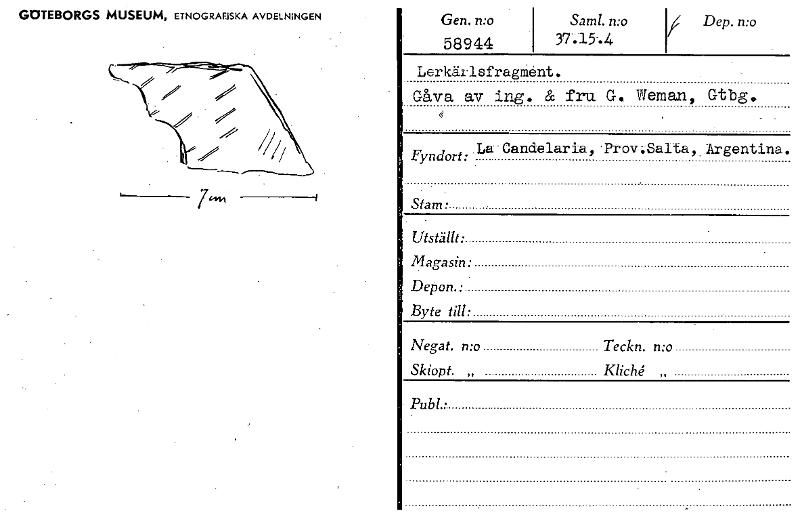 GÖTEBORGS MUSEUM, ETNOGRAFISKA AVDELNINGEN
7 cm
Gen. n:o Saml. n:o Dep. n:o
58944 37.15.4
Lerkärlsfragment.
Gåva av ing. & fru G. Weman, Gtbg.
Fyndort: La Candelaria, Prov.Salta, Argentina.
Stam:
Utställt:
Magasin:
Depon.:
Byte till:
Negat. n:o Teckn. n:o
Skiopt. „ Kliché „
Publ.: